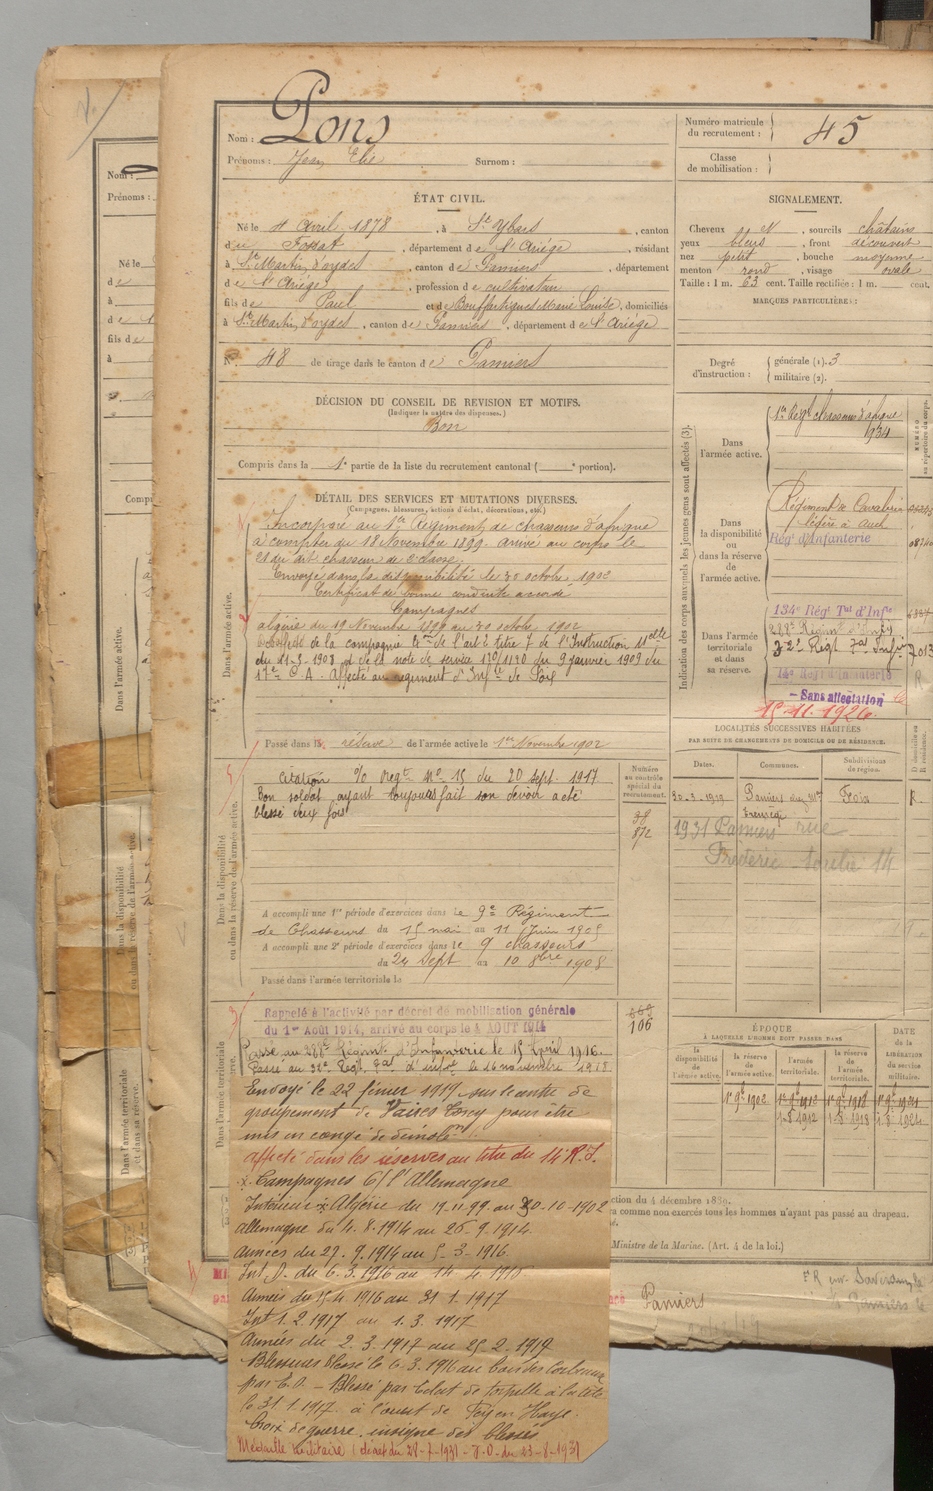 Nom : Pons
Prénoms : Jean Elie Surnom :
ÉTAT CIVIL.
Né le 4 Avril 1878, à St Ybars, canton
du Fossat, département de l'Ariège, résidant
à St Martin d'oydes, canton de Pamiers, département
de l'Ariège, profession de cultivateur
fils de Paul et de Bouffartigues Marie Louise, domiciliés
à St Martin d'oydes, canton de Pamiers, département de l'Ariège
N° 48 de tirage dans le canton de Pamiers
DÉCISION DU CONSEIL DE REVISION ET MOTIFS.
(Indiquer la nature des dispenses.)
Bon
Compris dans la 1e partie de la liste du recrutement cantonal ( e portion).
DÉTAIL DES SERVICES ET MUTATIONS DIVERSES.
(Campagnes, blessures, actions d'éclat, décorations, etc.)
Dans l'armée active.
Incorporé au 1er Régiment de chasseurs d'afrique
à compter du 18 Novembre 1899. arrivé au corps le
et dit chasseur de 2e classe.
Envoyé dans la disponibilité le 30 octobre 1902
Certificat de bonne conduite accordé
Campagnes
algérie du 19 Novembre 1899 au 30 octobre 1902
de la campagne de l'art 2 titre 7 de l'Instruction Melle
du 21-3-1908 et de la note de service du 9 janvier 1909 du
17e C.A. Affecté au régiment d'Infie de Foix
Passé dans la réserve de l'armée active le 1er Novembre 1902
Dans la disponibilité
ou dans la réserve de l'armée active.
Citation % Regt N° 15 du 20 sept. 1917
Bon soldat ayant toujours fait son devoir a été
blessé deux fois
A accompli une 1re période d'exercices dans le 9e Régiment
de Chasseurs du 15 mai au 11 Juin 1905
A accompli une 2e période d'exercices dans le 9 chasseurs
du 24 Sept au 10 8bre 1908
Passé dans l'armée territoriale le
Rappelé à l'activité par décret de mobilisation générale
du 1er Août 1914, arrivé au corps le 4 AOUT 1914
Passé au 288e Régiment d'Infanterie le 15 Avril 1916.
Passé au 32e Regt, d'infie le 16 novembre 1918
Envoyé le 22 février 1919 sur le centre de
groupement de Vaires Torcy pour être
mis en congé de démobon
affecté dans les réserves au titre du 14e R.I.
Campagnes C/ l'Allemagne
Intérieur Algérie du 19.11.99 au 30-10-1902
allemagne du 4.8.1914 au 26.9.1914
Armées du 27.9.1914 au 5-3-1916.
Int. du 6.3.1916 au 14-4-1916
Armées du 15 4 1916 au 31 1.1917
Int 1.2.1917 au 1.3.1917
Armées du 2.3.1917 au 25.2.1919
Blessures Blessé le 6.3.1916 au bois des Corbeaux
par E.O. – Blessé par éclat de torpille à la tête
le 31.1.1917 à l'ouest de Fey en Haye.
Croix de guerre. insigne des blessés
Médaille militaire (décret du 28-7-1931 - J.O. du 23-8-1931
Numéro matricule
du recrutement :
45
Classe
de mobilisation :
SIGNALEMENT.
Cheveux N, sourcils châtains
yeux bleus, front découvert
nez petit, bouche moyenne
menton rond, visage ovale
Taille : 1 m. 63 cent. Taille rectifiée : 1 m. cent.
MARQUES PARTICULIÈRES :
Degré
d'instruction :
générale (1). 3
militaire (2).
Indication des corps auxquels les jeunes gens sont affectés (3).
Dans
l'armée active.
1er Régt chasseurs d'afrique
1934
NUMÉRO
au répertoire du corps.
Dans
la disponibilité
ou
dans la réserve
de
l'armée active.
Régiment de Cavalerie
légère à Auch
Rég d'Infanterie
Dans l'armée
territoriale
et dans
sa réserve.
134e Régt Tal d'Infie
288e Régim d'Infie
32e Régt Infie
14e Régt d'Infanterie
– Sans affectation
15-11-1926.
LOCALITÉS SUCCESSIVES HABITÉES
PAR SUITE DE CHANGEMENTS DE DOMICILE OU DE RÉSIDENCE.
Dates. Communes. Subdivisions de région. D domicile ou R résidence.
30-3-1919 Pamiers Foix R.
1931 Pamiers rue
Frédéric 14
Numéro
au contrôle
spécial du
recrutement.
38
872
106
ÉPOQUE
À LAQUELLE L'HOMME DOIT PASSER DANS
la disponibilité de l'armée active. la réserve de l'armée active. l'armée territoriale. la réserve de l'armée territoriale.
DATE
de la
LIBÉRATION
du service
militaire.
1r 9e 1902 1r 9e 1912 1r 9e 1918 1r 9e 1924
1-8-1912 1-8-1918 1-8-1924
ction du 4 décembre 1889.
ra comme non exercés tous les hommes n'ayant pas passé au drapeau.
Ministre de la Marine. (Art. 4 de la loi.)
Pamiers
Nom :
Prénoms :
Né le
de
à
fils de
Compri
Dans l'armée active.
Dans la disponibilité
Dans l'armée territoriale
et dans sa réserve.